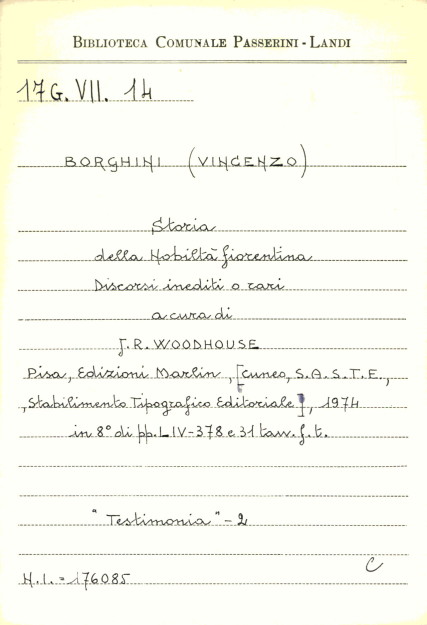 BIBLIOTECA COMUNALE PASSERINI - LANDI
17G. VII. 14
BORGHINI (VINCENZO)
Storia
della Nobiltà fiorentina
Discorsi inediti o rari
a cura di
J. R. WOODHOUSE
Pisa, Edizioni Marlin, [Cuneo, S.A.S.T.E.,
, Stabilimento Tipografico Editoriale], 1974
in 8° di pp. LIV-378 e 31 tavv. f. t.
"Testimonia" - 2
C
N. I. = 176085